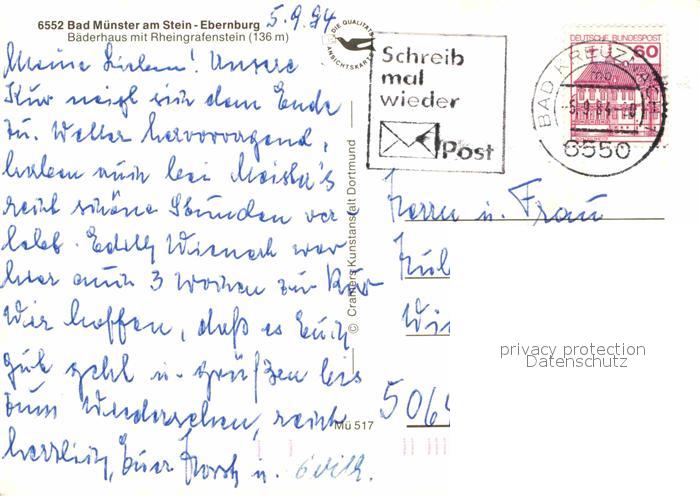 6552 Bad Münster am Stein - Ebernburg 5.9.84
Bäderhaus mit Rheingrafenstein (136 m)
Meine Lieben! Unsere
Kur neigt sich dem Ende
zu. Wetter hervorragend,
haben auch bei Meister's
recht schöne Stunden ver
lebt. Edith war
hier auch 3 Wochen zur Kur
Wir hoffen, daß es Euch
gut geht u. grüßen bis
zum Wiedersehen, recht
herzlich, Euer Horst u. Edith.
DIE QUALITÄTS
ANSICHTSKARTE
Schreib
mal
wieder
Post
DEUTSCHE BUNDESPOST
60
BAD KREUZNACH
-5.9.84
6550
© Cramers Kunstanstalt Dortmund
Herrn u. Frau
506
Mü 517
privacy protection
Datenschutz